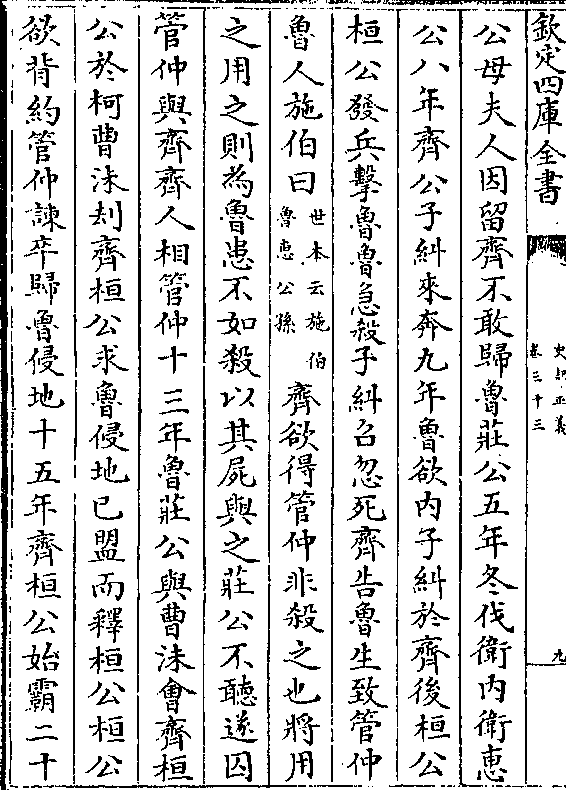 欽定四庫全書
史記正義
卷三十三
九
公母夫人因留齊不敢歸魯莊公五年冬伐衛内衛惠
公八年齊公子糾來奔九年魯欲内子糾於齊後桓公
桓公發兵擊魯魯急殺子糾召忽死齊告魯生致管仲
魯人施伯曰
世本云施伯
魯惠公孫
齊欲得管仲非殺之也將用
之用之則為魯患不如殺以其屍與之莊公不聽遂囚
管仲與齊齊人相管仲十三年魯莊公與曹沬會齊桓
公於柯曹沬刦齊桓公求魯侵地已盟而釋桓公桓公
欲背約管仲諫卒歸魯侵地十五年齊桓公始霸二十